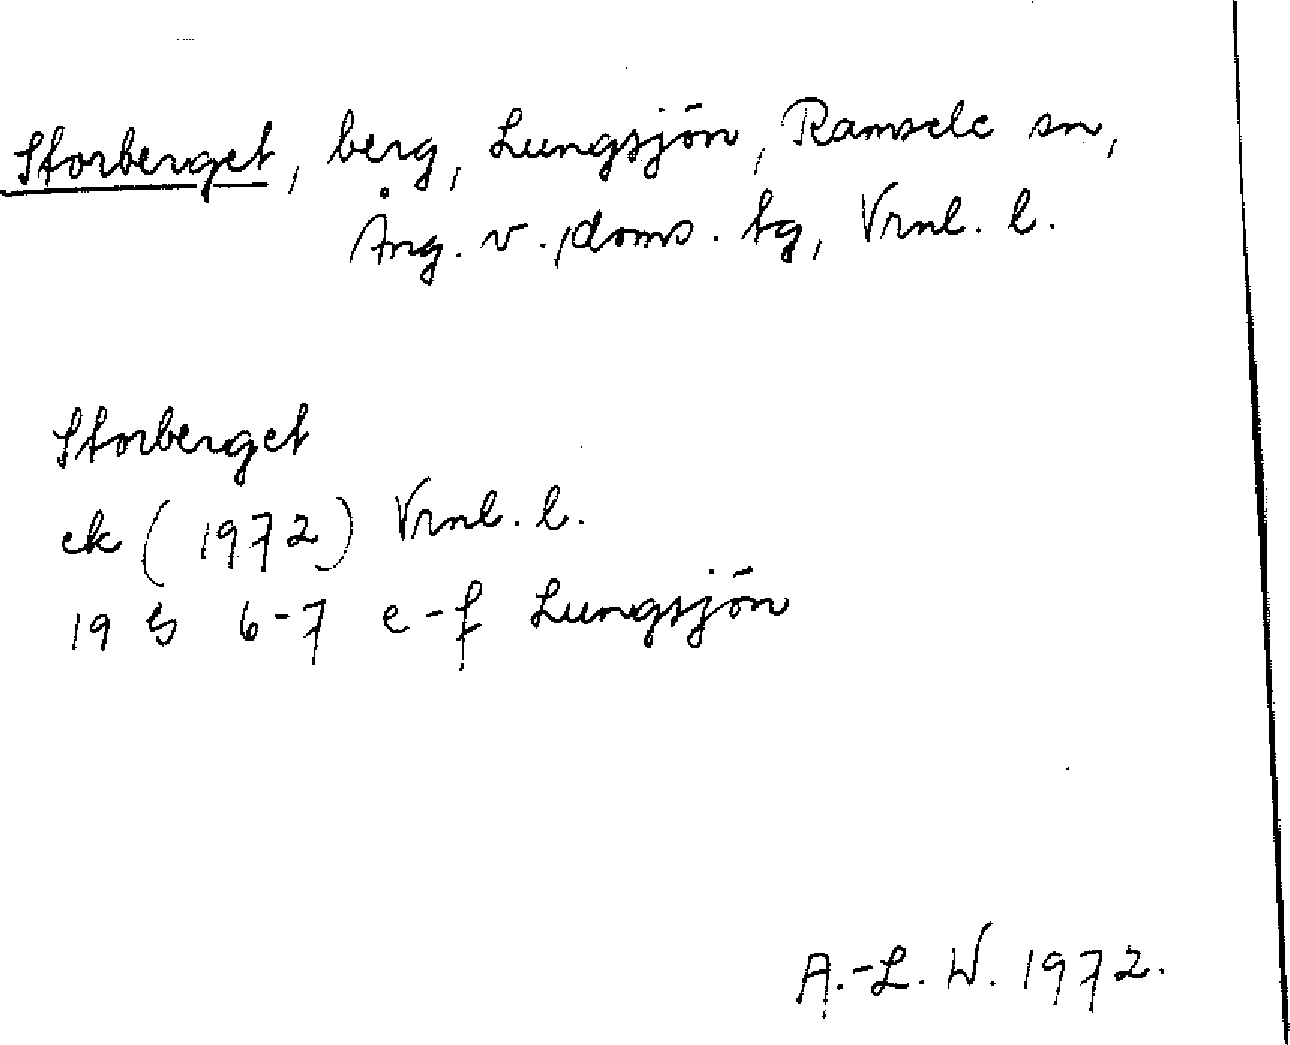 Storberget, berg, Lungsjön, Ramsele sn,
Ång. v., doms. tg, Vrnl. l.
Storberget
ek (1972) Vrnl. l.
19 G 6-7 e-f Lungsjön
A.-L. W. 1972.